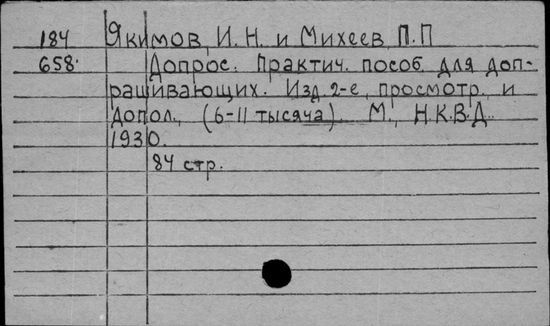 184 Якимов, И. Н. и Михеев, П. П
658. Допрос. Практич. пособ. для доп-
рашивающих. Изд. 2-е, просмотр. и
допол., (6-11 тысяча). М., Н.К.В.Д.
1930.
84 стр.